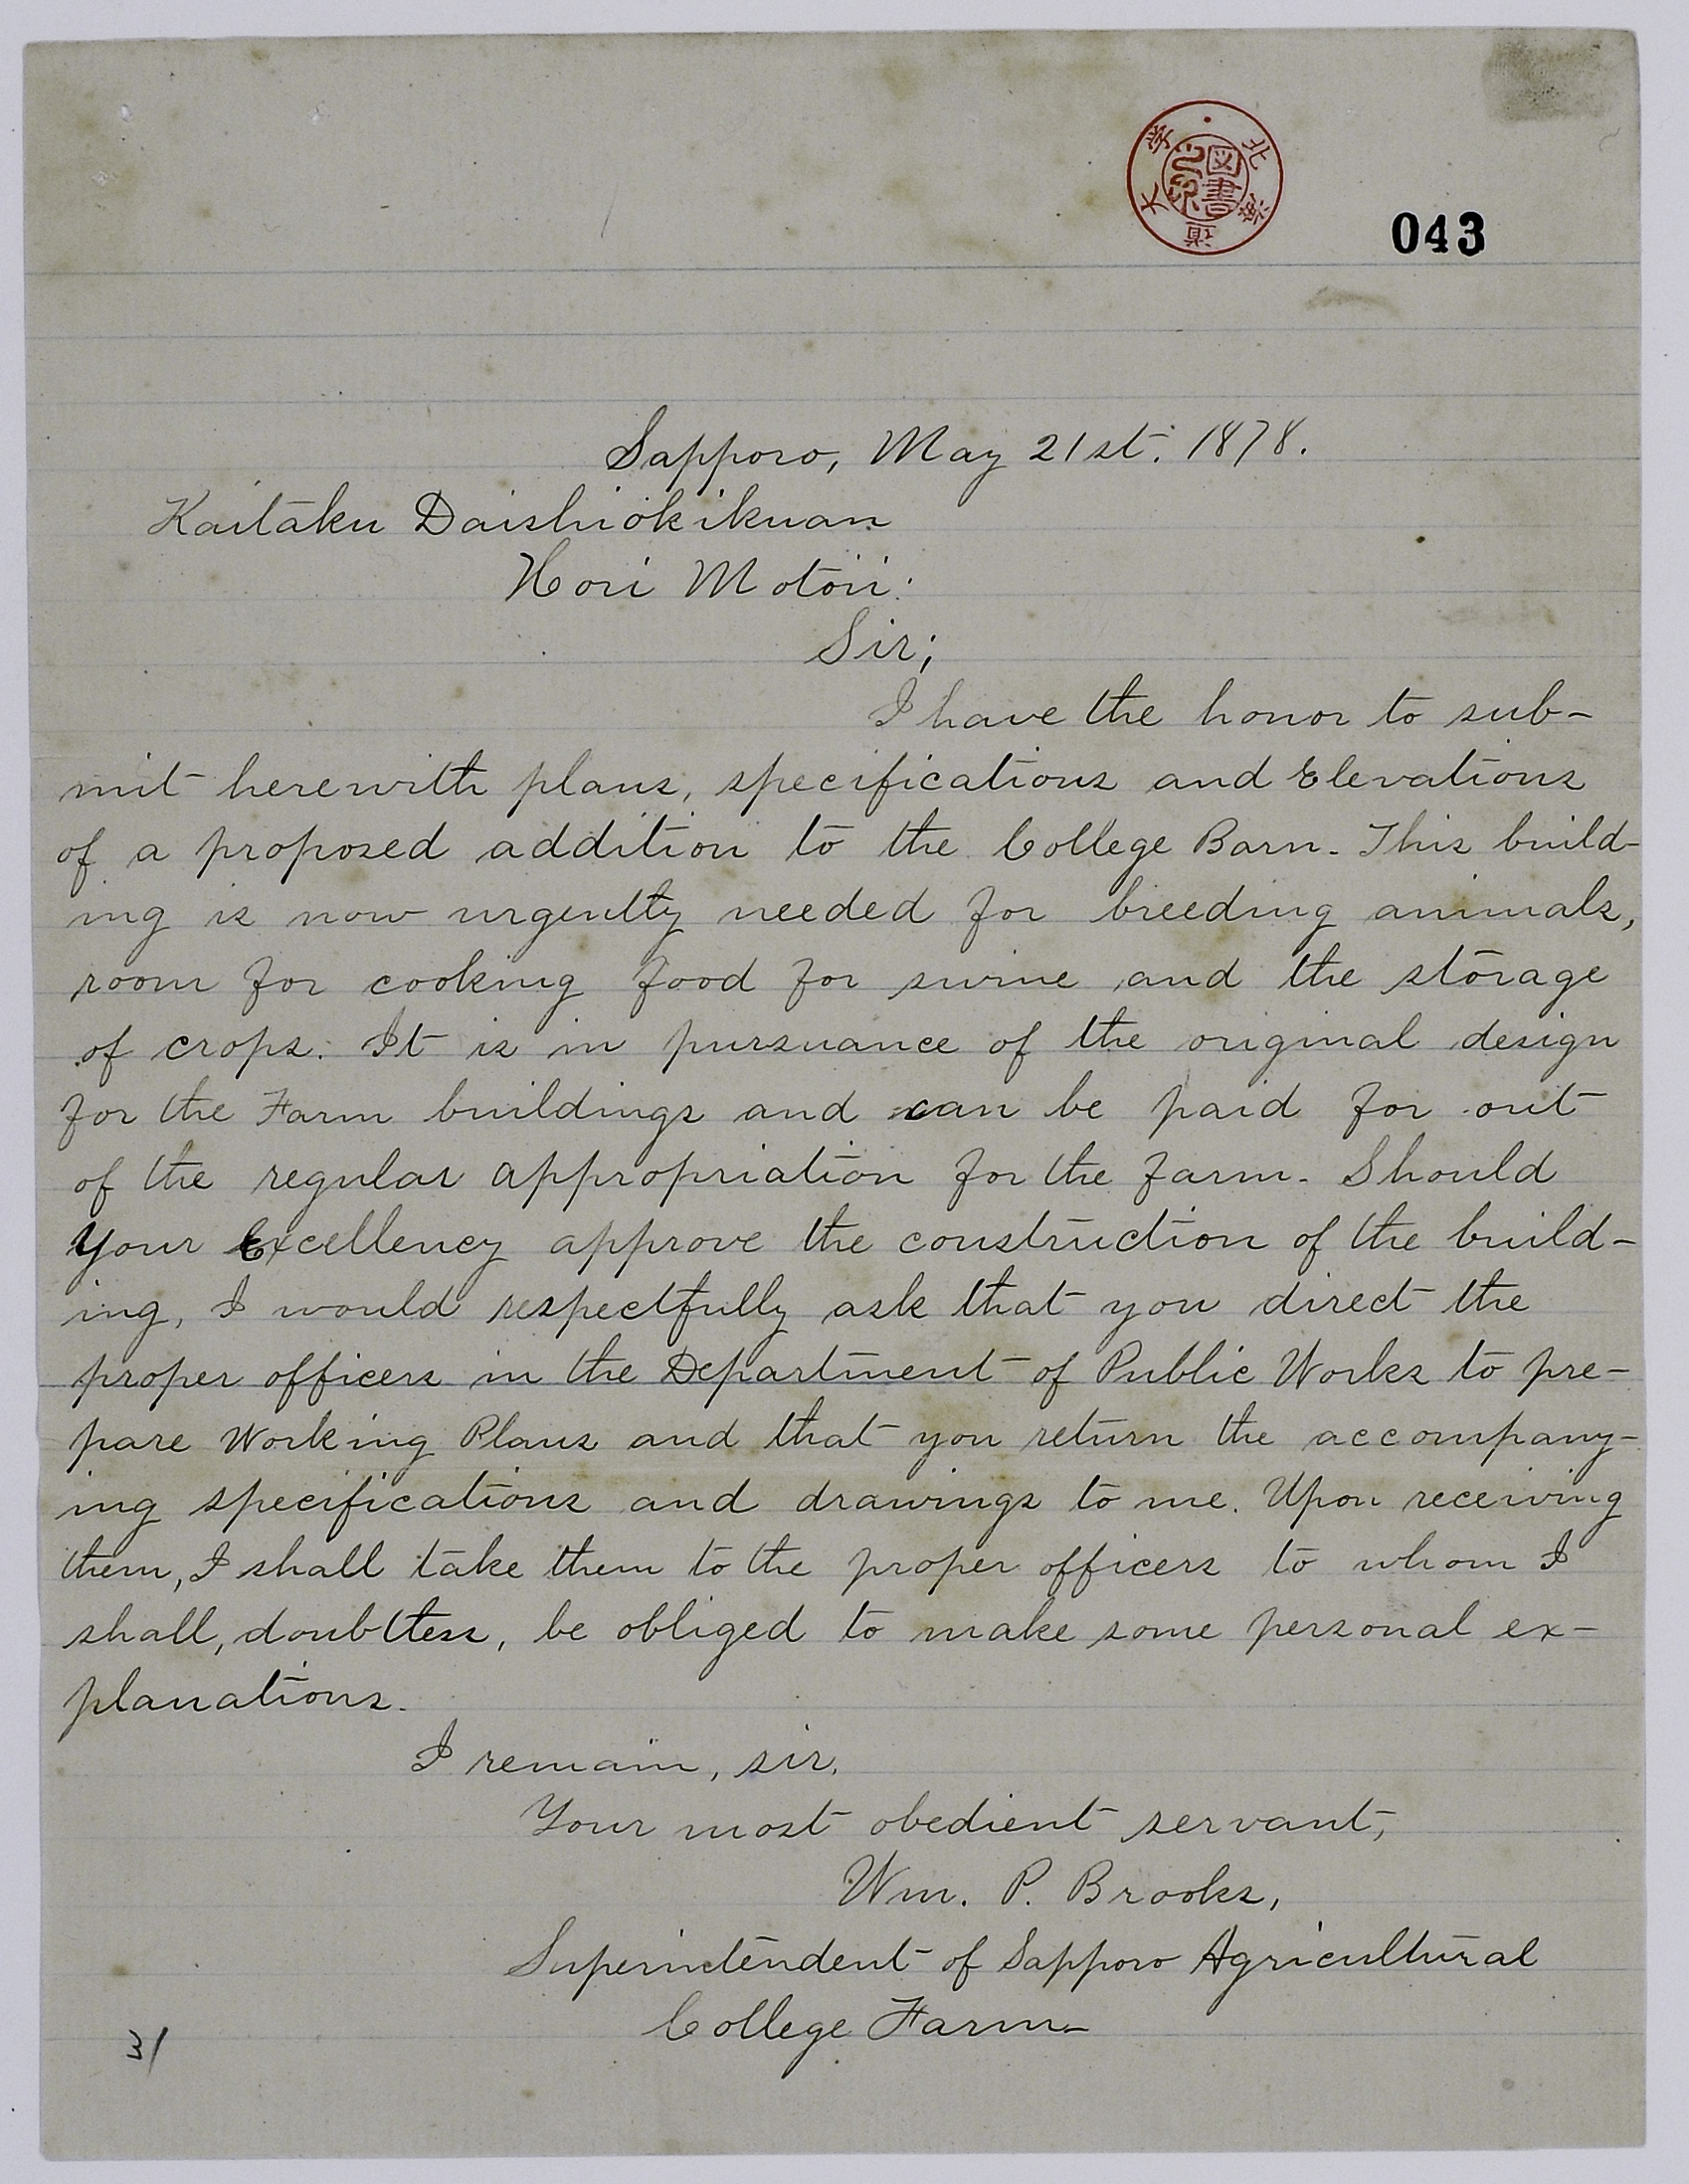 北海道大学
図書之印
043
Sapporo, May 21st. 1878.
Kaitaku Daishiokikuan
Hori Motoii:
Sir;
I have the honor to sub-
mit herewith plans, specifications and Elevations
of a proposed addition to the College Barn. This build-
ing is now urgently needed for breeding animals,
room for cooking food for swine and the storage
of crops. It is in pursuance of the original design
for the Farm buildings and can be paid for out
of the regular appropriation for the farm. Should
Your Excellency approve the construction of the build-
ing, I would respectfully ask that you direct the
proper officers in the Department of Public Works to pre-
pare Working Plans and that you return the accompany-
ing specifications and drawings to me. Upon receiving
them, I shall take them to the proper officers to whom I
shall, doubtless, be obliged to make some personal ex-
planations.
I remain, sir,
Your most obedient servant,
Wm. P. Brooks,
Superintendent of Sapporo Agricultural
College Farm-
31